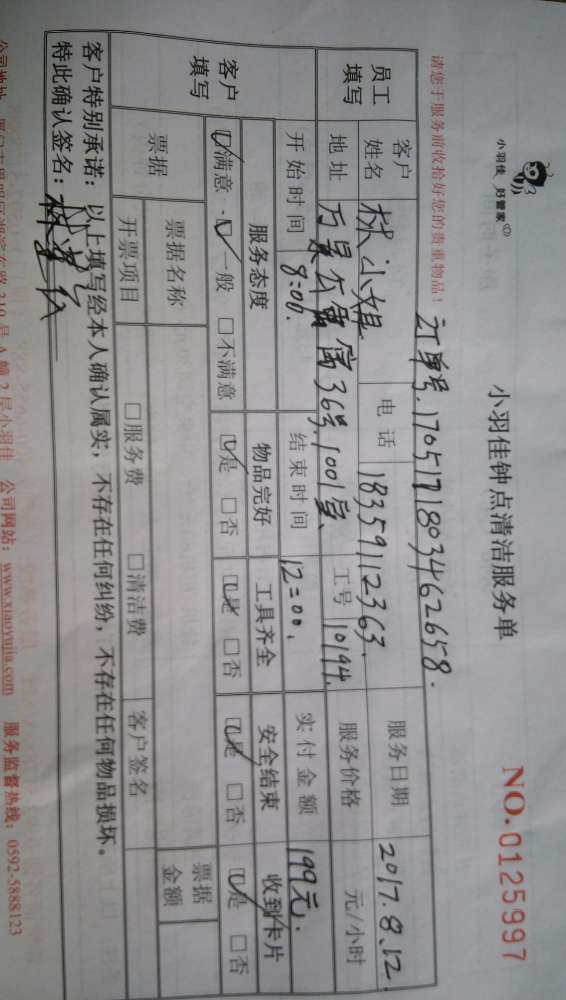 小羽佳 好管家
小羽佳钟点清洁服务单
NO.0125997
请您于服务前收拾好您的贵重物品！
订单号.170517180346 2658.
员工填写
客户姓名 林小姐 电话 18359112363. 服务日期 2017.8.12.
地址 万景公寓 36号1001室 工号 10194. 服务价格 元/小时
开始时间 8:00. 结束时间 12:00. 实付金额 199元.
客户填写
服务态度 物品完好 工具齐全 安全结束 收到卡片
☑满意 ☑一般 □不满意 ☑是 □否 ☑是 □否 ☑是 □否 ☑是 □否
票据 票据名称 票据金额
开票项目 □服务费 □清洁费 客户签名
客户特别承诺：以上填写经本人确认属实，不存在任何纠纷，不存在任何物品损坏。
特此确认签名：林
公司网站：www.xiaoyujia.com 服务监督热线：0592-5888123